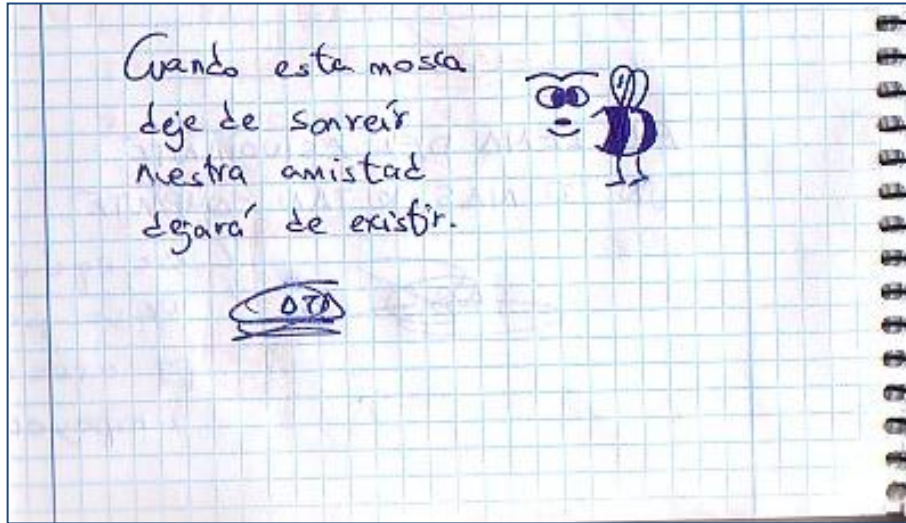 Cuando esta mosca
deje de sonreír
nuestra amistad
dejará de existir.